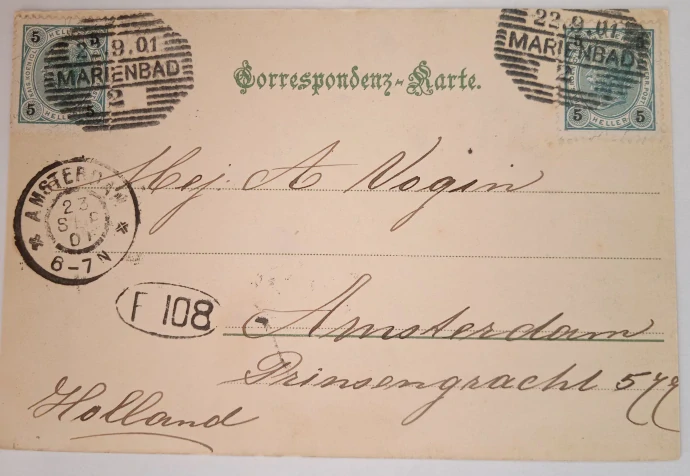 5 5
22.9.01
MARIENBAD
2
5 HELLER 5
Correspondenz-Karte.
22.9.01
MARIENBAD
2
5 HELLER 5
Mej. A Vogin
AMSTERDAM
23
SEP
01
6-7N
F 108
Amsterdam
Prinsengracht 577
Holland